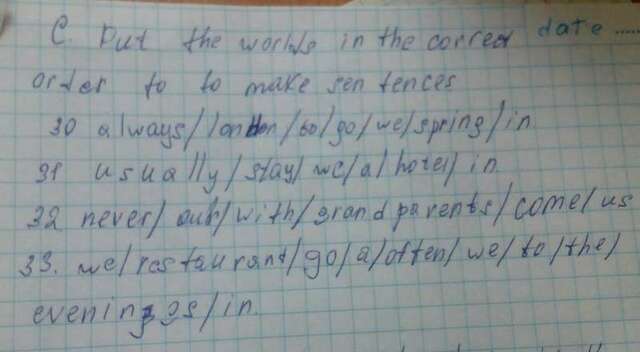 C. Put the worlds in the correct date .....
order to to make sentences
30 always/london/to/go/we/spring/in
31 usually/stay/we/a/hotel/in
32 never/our/with/grandparents/come/us
33. we/restaurant/go/a/often/we/to/the/
evenings/in.